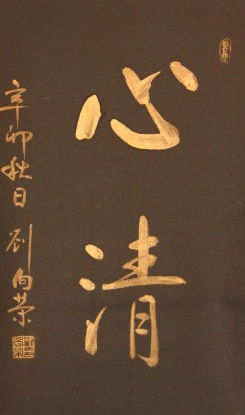 心清
辛卯秋日 刘向荣